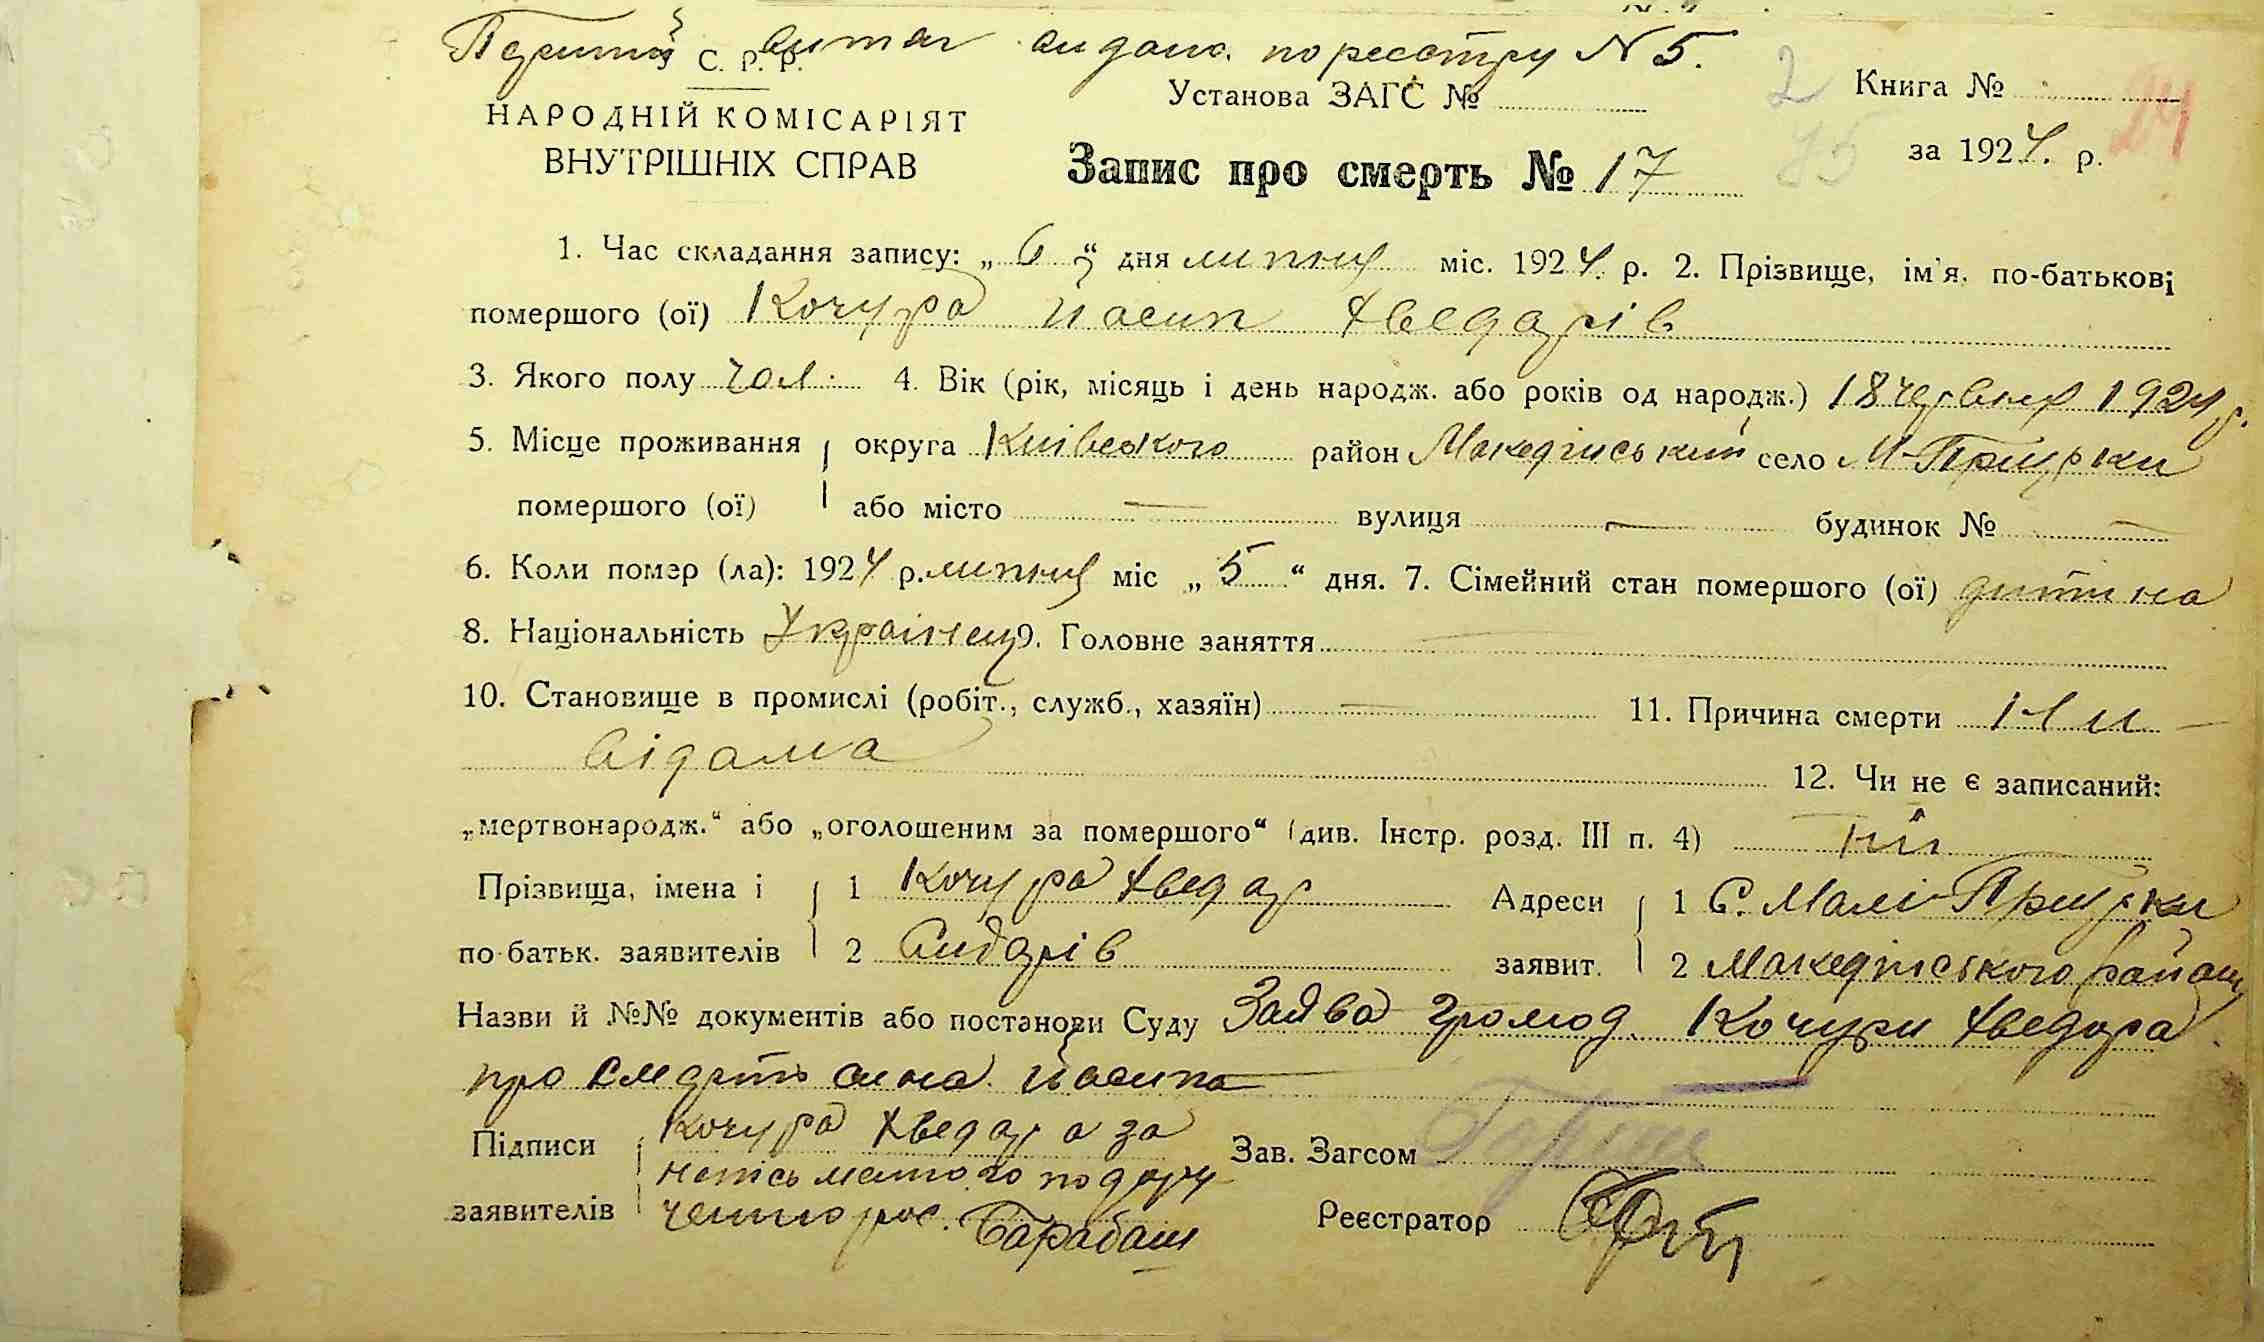 Перший витяг видано по реєстру N 5.
У С. Р. Р.
Установа ЗАГС №
Книга №
24
2
НАРОДНІЙ КОМІСАРІЯТ
ВНУТРІШНІХ СПРАВ
Запис про смерть № 17
за 1924. р.
1. Час складання запису: „ 6 “ дня липня міс. 1924. р. 2. Прізвище, ім'я, по-батькові
помершого (ої) Кочура Йосип Хведорів
3. Якого полу чол. 4. Вік (рік, місяць і день народж. або років од народж.) 18 червня 1924 р.
5. Місце проживання округа Київського район Македонський село М-Прицьки
помершого (ої) або місто — вулиця — будинок № —
6. Коли помер (ла): 1924 р. липня міс „ 5 “ дня. 7. Сімейний стан помершого (ої) дитина
8. Національність Українец 9. Головне заняття —
10. Становище в промислі (робіт., служб., хазяїн) — 11. Причина смерти Не-
відома
12. Чи не є записаний:
„мертвонародж.“ або „оголошеним за помершого“ (див. Інстр. розд. III п. 4) ні
Прізвища, імена і 1 Кочура Хведор Адреси 1 С. Малі-Прицьки
по-батьк. заявителів 2 Сидорів заявит. 2 Македонського району
Назви й №№ документів або постанови Суду Заява громад. Кочури Хведора
про смерть сина Йосипа
Підписи Кочура Хведора за Зав. Загсом
неписьменого по дору-
заявителів ченню рос. Барабаш Реєстратор